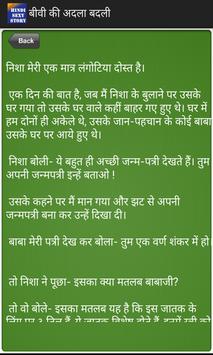 HINDI
SEXY
STORY
बीवी की अदला बदली
Back
निशा मेरी एक मात्र लंगोटिया दोस्त है।
एक दिन की बात है, जब मैं निशा के बुलाने पर उसके
घर गया तो उसके घर वाले कहीं बाहर गए हुए थे। घर में
हम दोनों ही अकेले थे, उसके जान-पहचान के कोई बाबा
उसके घर पर आये।
निशा बोली- ये बहुत ही अच्छी जन्म-पत्री देखते हैं। तुम
अपनी जन्मपत्री इन्हें बताओ !
उसके कहने पर मैं मान गया और झट से अपनी
जन्मपत्री बना कर उन्हें दिखा दी।
बाबा मेरी पत्री देख कर बोला- तुम एक वर्ण शंकर में हो।
तो निशा ने पूछा- इसका क्या मतलब बाबाजी?
तो वो बोले- इसका मतलब यह है कि इस जातक के